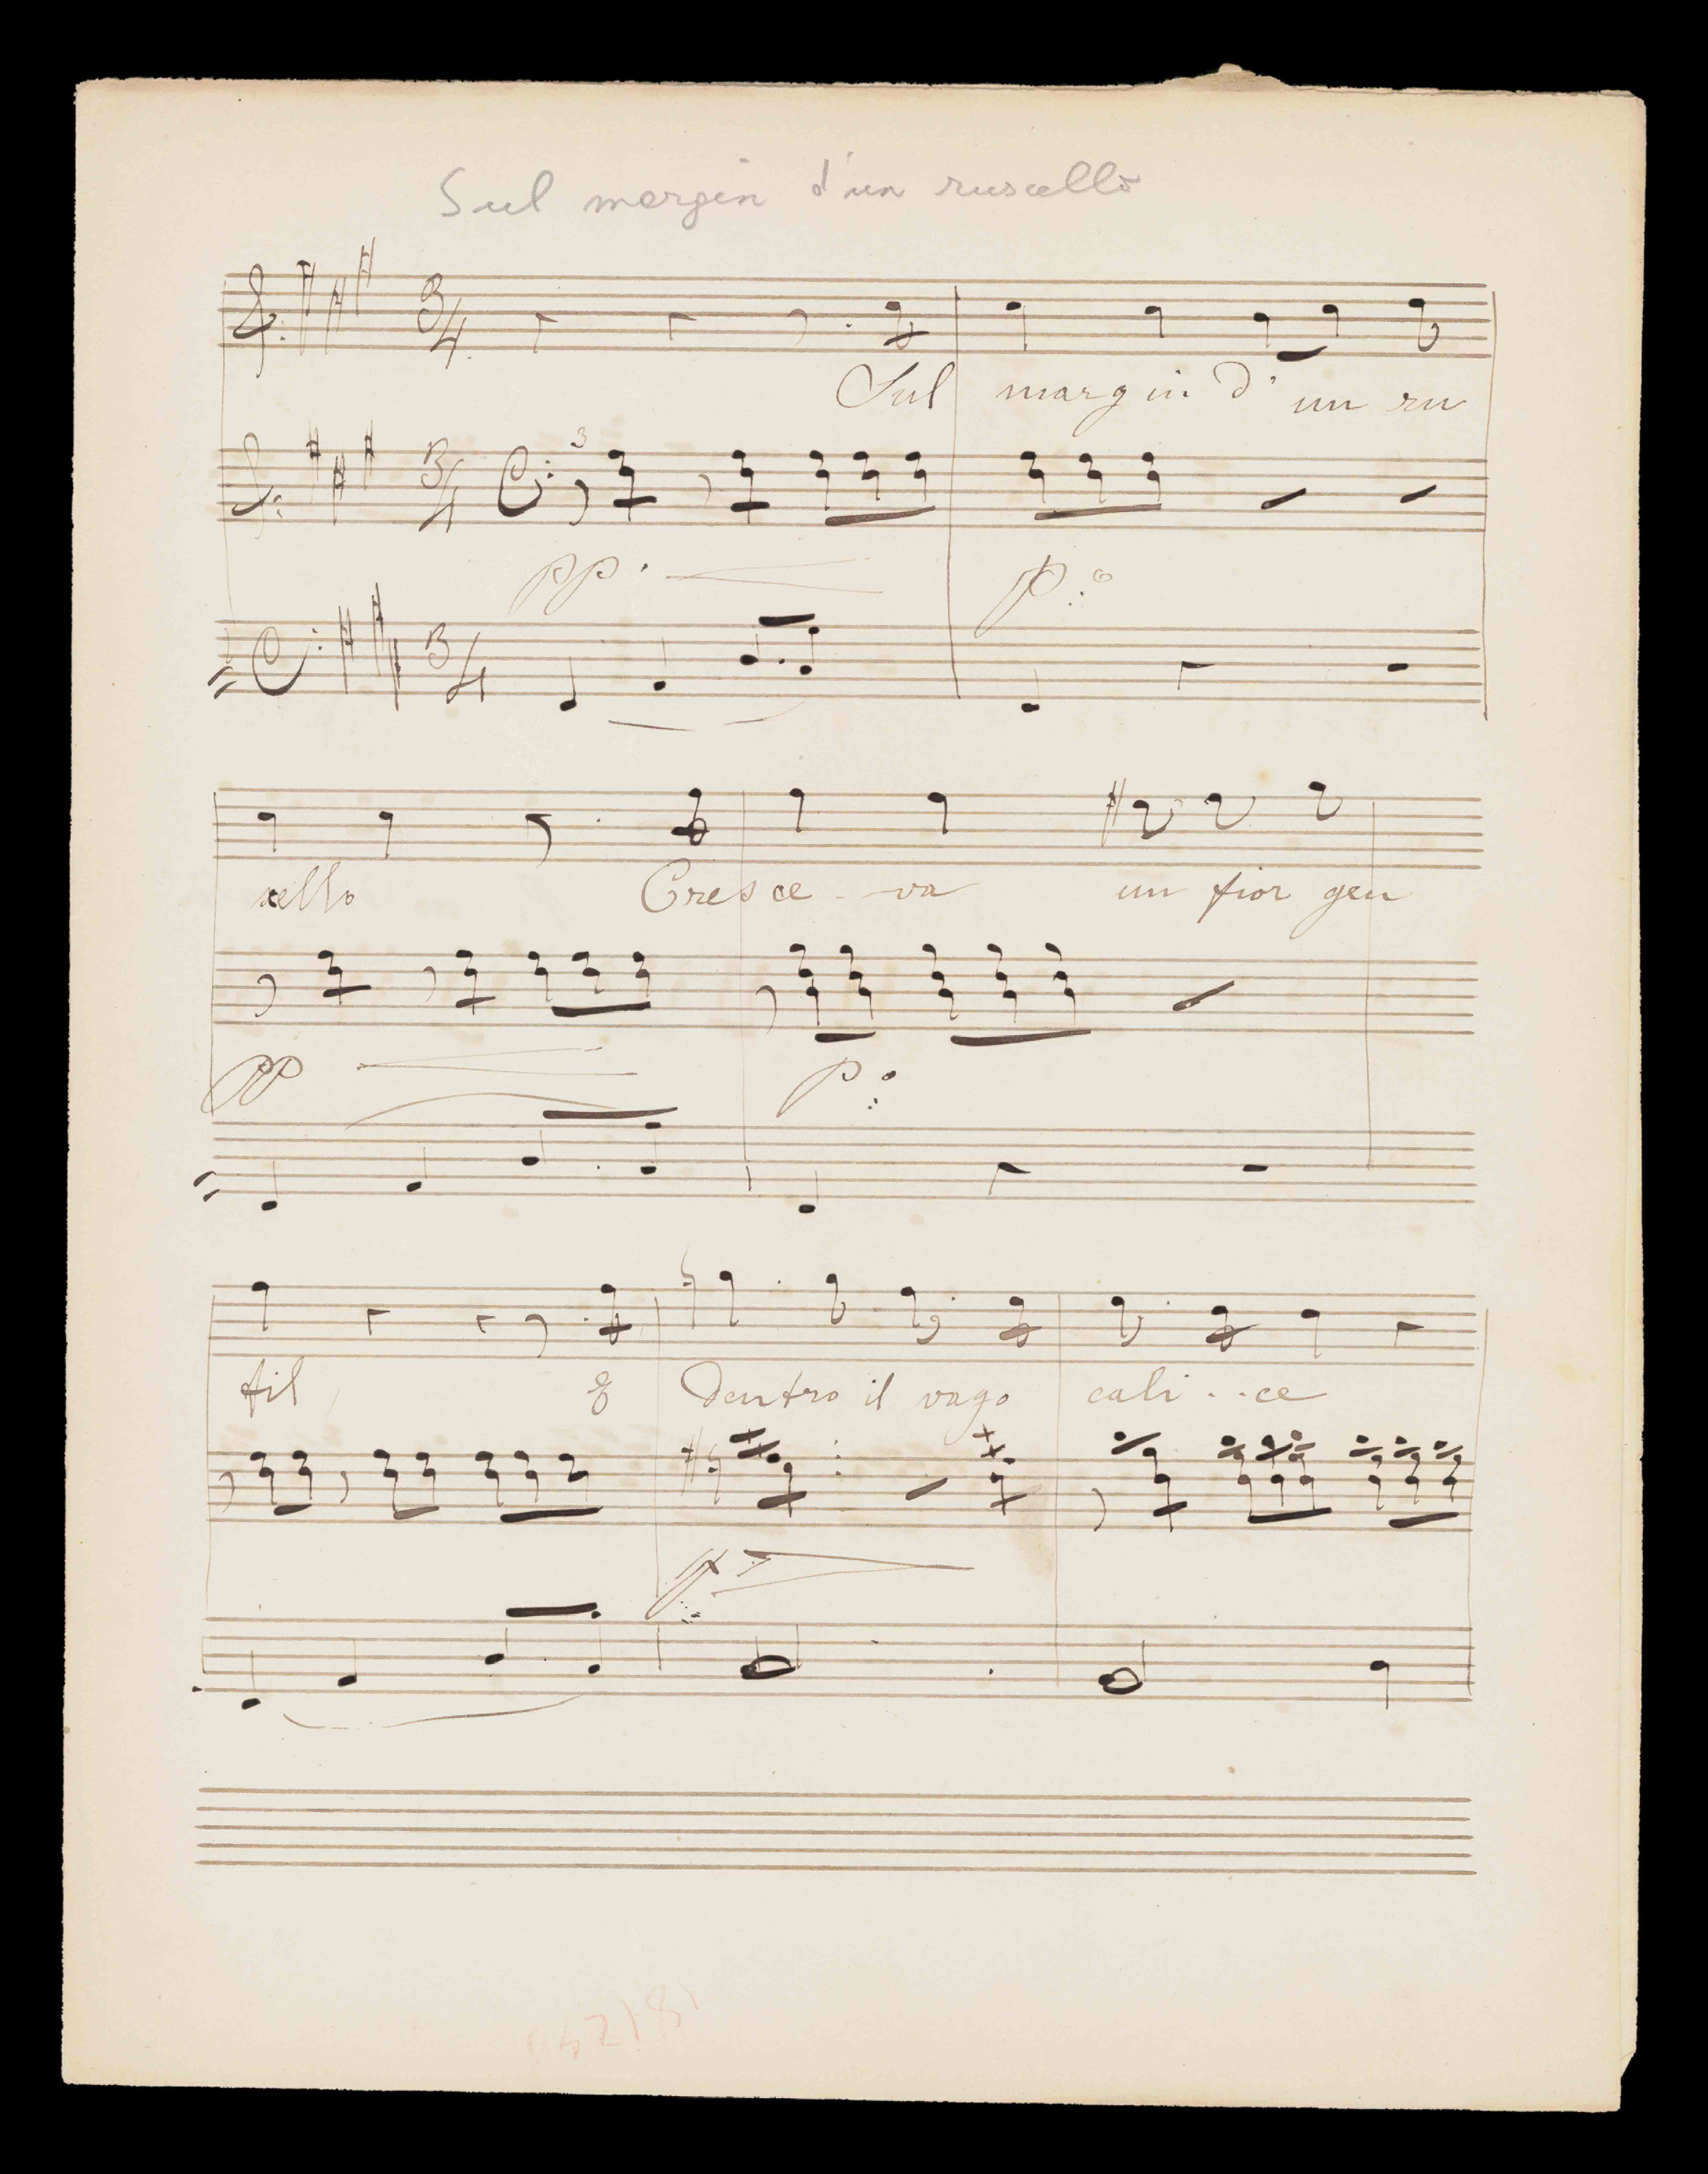 Sul margin d'un ruscello
3/4
Sul margin d' un ru
3/4 3
pp. p:
3/4
scello Cresce - - va un fior gen
pp p:
fil, E Dentro il vago cali - - ce
p